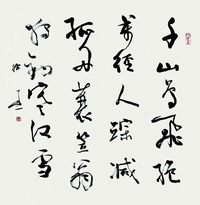 千山鸟飛绝
萬径人踪滅
孤舟蓑笠翁
独钓寒江雪